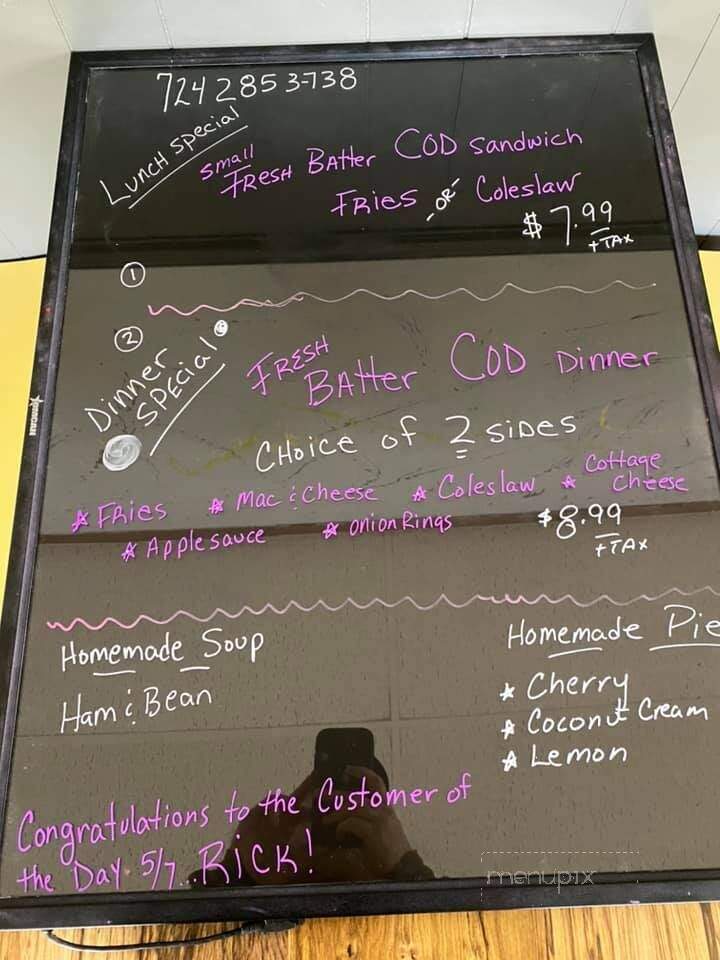 724 285 3738
Lunch Special
Small
Fresh Batter COD Sandwich
Fries -OR- Coleslaw
$7.99
+TAX
①
②
Dinner Special
Fresh
Batter COD Dinner
Choice of 2 sides
☆ Fries ☆ Mac & Cheese ☆ Coleslaw ☆ Cottage Cheese
☆ Applesauce ☆ onion Rings
$8.99
+TAX
Homemade Soup
Ham & Bean
Homemade Pie
☆ Cherry
☆ Coconut Cream
☆ Lemon
Congratulations to the Customer of
the Day 5/7...Rick!
menupix